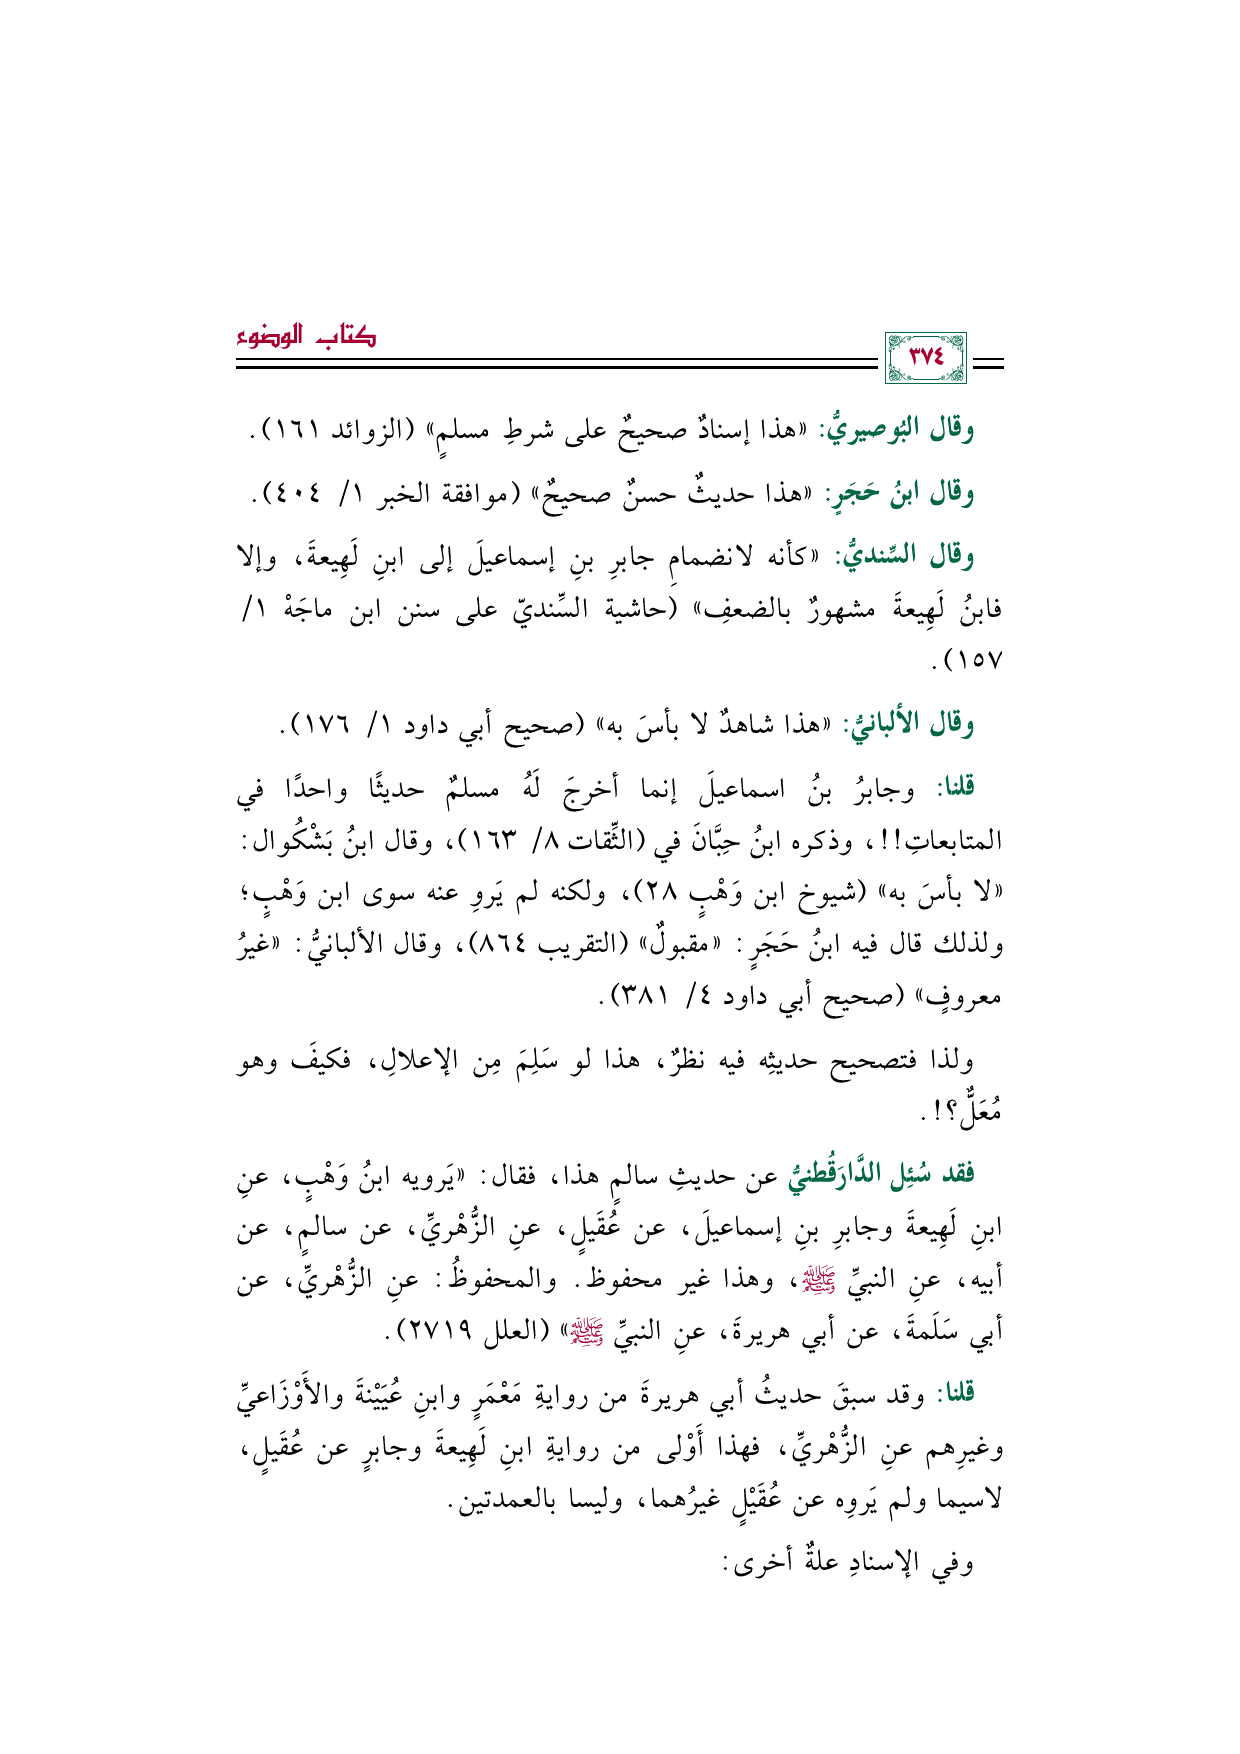 كتاب الوضوء
٣٧٤
وقال البُوصيريُّ: «هذا إسنادٌ صحيحٌ على شرطِ مسلمٍ» (الزوائد ١٦١).
وقال ابنُ حَجَرٍ: «هذا حديثٌ حسنٌ صحيحٌ» (موافقة الخبر ١/ ٤٠٤).
وقال السِّنديُّ: «كأنه لانضمامِ جابرِ بنِ إسماعيلَ إلى ابنِ لَهِيعةَ، وإلا
فابنُ لَهِيعةَ مشهورٌ بالضعفِ» (حاشية السِّنديّ على سنن ابن ماجَهْ ١/
١٥٧).
وقال الألبانيُّ: «هذا شاهدٌ لا بأسَ به» (صحيح أبي داود ١/ ١٧٦).
قلنا: وجابرُ بنُ اسماعيلَ إنما أخرجَ لَهُ مسلمٌ حديثًا واحدًا في
المتابعاتِ!!، وذكره ابنُ حِبَّانَ في (الثِّقات ٨/ ١٦٣)، وقال ابنُ بَشْكُوال:
«لا بأسَ به» (شيوخ ابن وَهْبٍ ٢٨)، ولكنه لم يَروِ عنه سوى ابن وَهْبٍ؛
ولذلك قال فيه ابنُ حَجَرٍ: «مقبولٌ» (التقريب ٨٦٤)، وقال الألبانيُّ: «غيرُ
معروفٍ» (صحيح أبي داود ٤/ ٣٨١).
ولذا فتصحيح حديثِه فيه نظرٌ، هذا لو سَلِمَ مِن الإعلالِ، فكيفَ وهو
مُعَلٌّ؟!.
فقد سُئِل الدَّارَقُطنيُّ عن حديثِ سالمٍ هذا، فقال: «يَرويه ابنُ وَهْبٍ، عنِ
ابنِ لَهِيعةَ وجابرِ بنِ إسماعيلَ، عن عُقَيلٍ، عنِ الزُّهْريِّ، عن سالمٍ، عن
أبيه، عنِ النبيِّ ﷺ، وهذا غير محفوظ. والمحفوظُ: عنِ الزُّهْريِّ، عن
أبي سَلَمةَ، عن أبي هريرةَ، عنِ النبيِّ ﷺ» (العلل ٢٧١٩).
قلنا: وقد سبقَ حديثُ أبي هريرةَ من روايةِ مَعْمَرٍ وابنِ عُيَيْنةَ والأَوْزَاعيِّ
وغيرِهم عنِ الزُّهْريِّ، فهذا أَوْلى من روايةِ ابنِ لَهِيعةَ وجابرٍ عن عُقَيلٍ،
لاسيما ولم يَروِه عن عُقَيْلٍ غيرُهما، وليسا بالعمدتين.
وفي الإسنادِ علةٌ أخرى: